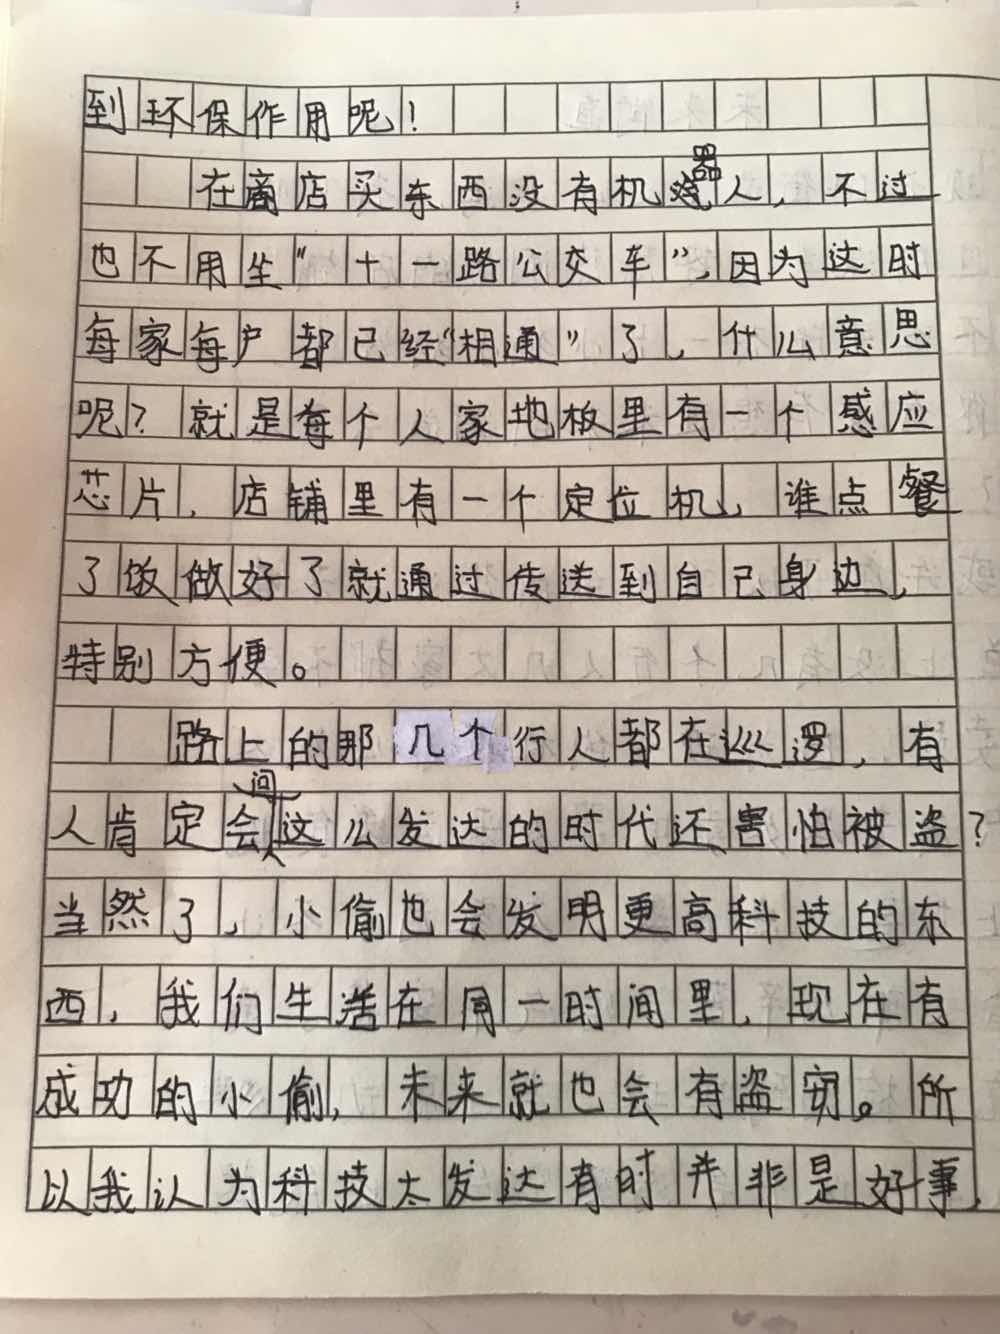 到环保作用呢！
在商店买东西没有机器人，不过
也不用坐“十一路公交车”，因为这时
每家每户都已经“相通”了，什么意思
呢？就是每个人家地板里有一个感应
芯片，店铺里有一个定位机，谁点餐
了饭做好了就通过传送到自己身边，
特别方便。
路上的那几个行人都在巡逻，有
人肯定会问这么发达的时代还害怕被盗？
当然了，小偷也会发明更高科技的东
西，我们生活在同一时间里，现在有
成功的小偷，未来就也会有盗窃。所
以我认为科技太发达有时并非是好事，